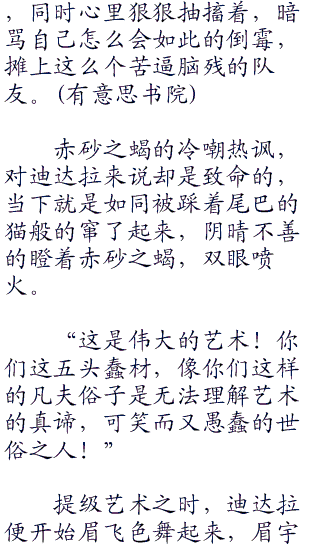 ，同时心里狠狠抽搐着，暗
骂自己怎么会如此的倒霉，
摊上这么个苦逼脑残的队
友。(有意思书院)
赤砂之蝎的冷嘲热讽，
对迪达拉来说却是致命的，
当下就是如同被踩着尾巴的
猫般的窜了起来，阴晴不善
的瞪着赤砂之蝎，双眼喷
火。
“这是伟大的艺术！你
们这五头蠢材，像你们这样
的凡夫俗子是无法理解艺术
的真谛，可笑而又愚蠢的世
俗之人！”
提级艺术之时，迪达拉
便开始眉飞色舞起来，眉宇